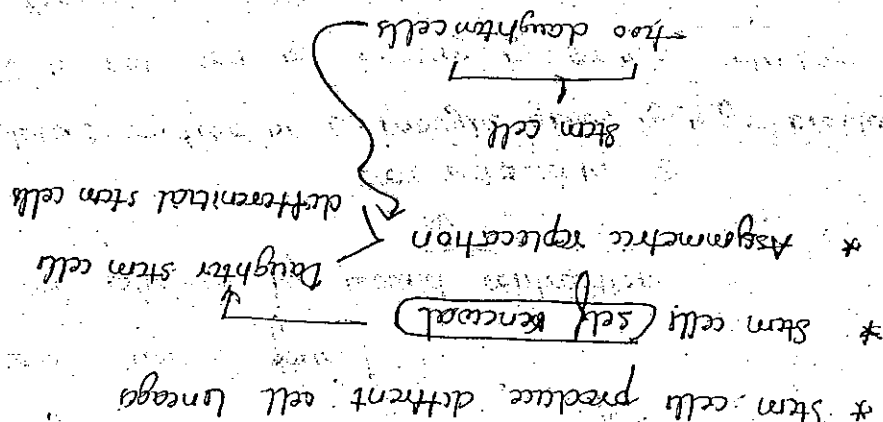 * Stem cells produce different cell lineages
* Stem cells (self renewal)
Daughter stem cells
* Assymmetric replecation
differenitial stem cells
Stem cell
two daughter cells